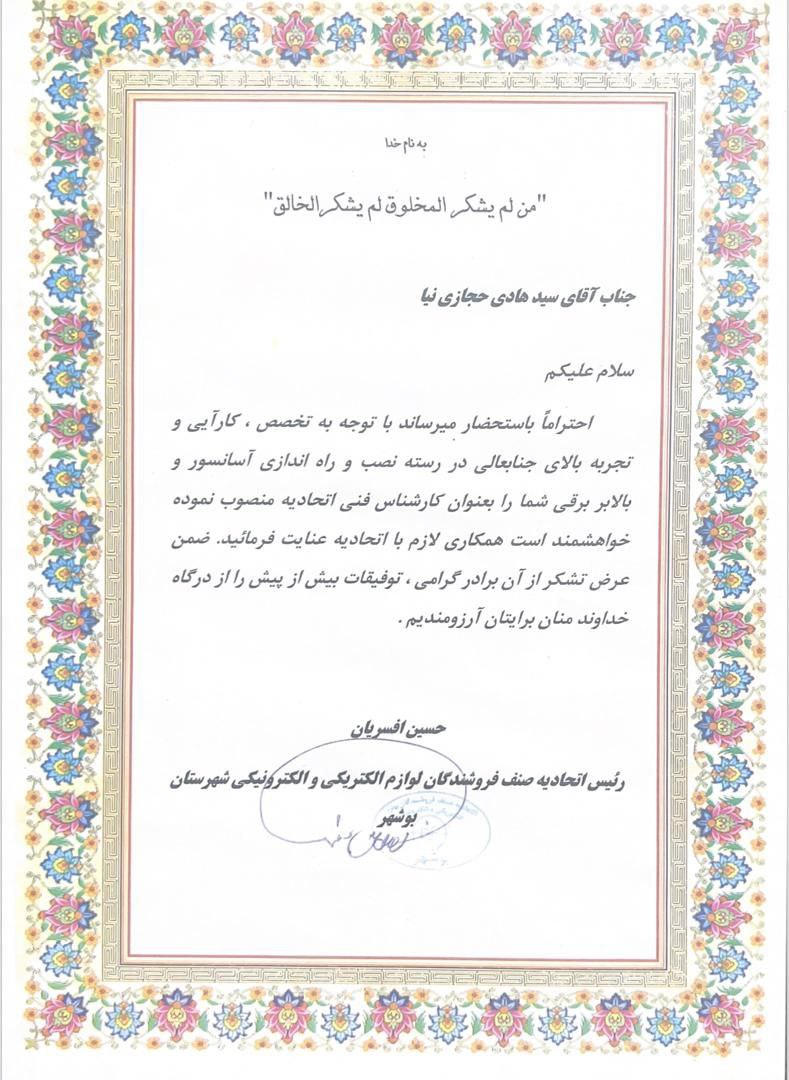 به نام خدا
"من لم یشکر المخلوق لم یشکر الخالق"
جناب آقای سید هادی حجازی نیا
سلام علیکم
احتراماً باستحضار میرساند با توجه به تخصص ، کارآیی و
تجربه بالای جنابعالی در رسته نصب و راه اندازی آسانسور و
بالابر برقی شما را بعنوان کارشناس فنی اتحادیه منصوب نموده
خواهشمند است همکاری لازم با اتحادیه عنایت فرمائید. ضمن
عرض تشکر از آن برادر گرامی ، توفیقات بیش از پیش را از درگاه
خداوند منان برایتان آرزومندیم .
حسین افسریان
رئیس اتحادیه صنف فروشندگان لوازم الکتریکی و الکترونیکی شهرستان
بوشهر
بوشهر